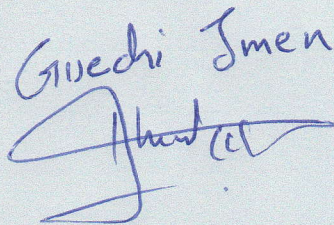 Guechi Imen